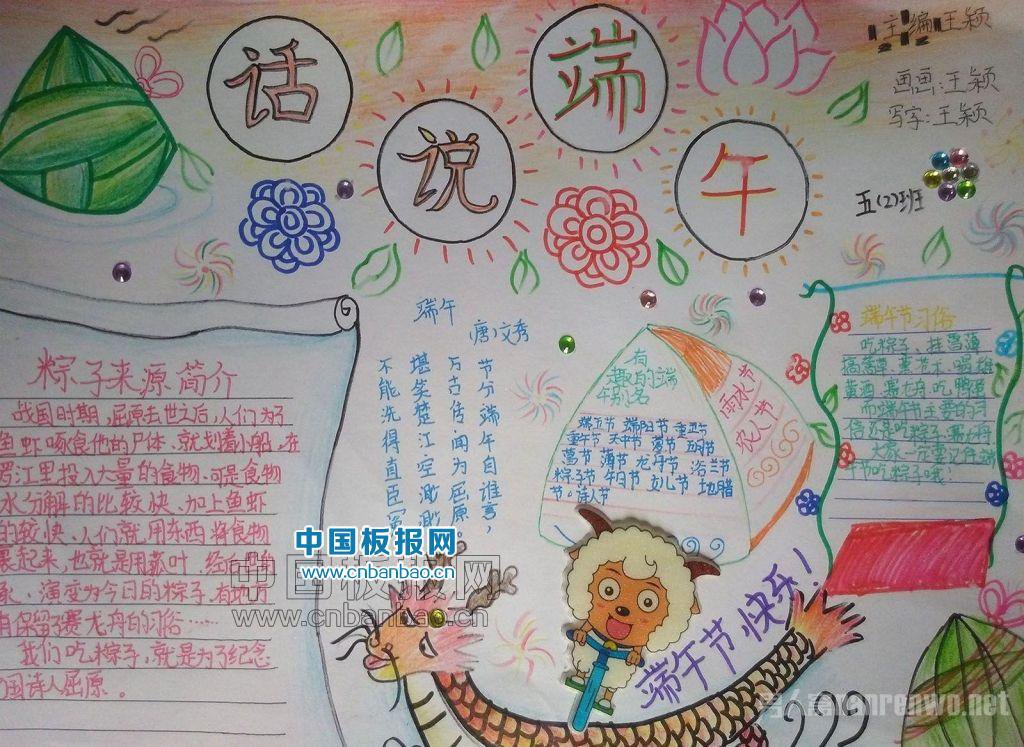 话说端午
主编:王颖
画画:王颖
写字:王颖
五(2)班
粽子来源简介
战国时期,屈原去世之后,人们为了
鱼虾啄食他的尸体,就划着小船,在
罗江里投入大量的食物,可是食物
水分解的比较快,加上鱼虾
的较快,人们就用东西将食物
裹起来,也就是用苇叶
演变为今日的粽子,有地方
保留了赛龙舟的习俗……
我们吃粽子,就是为了纪念
国诗人屈原。
端午
唐 文秀
节分端午自谁言,
万古传闻为屈原。
堪笑楚江空渺渺,
不能洗得直臣冤
有
趣的端
午别名
端五节 端阳节 重五节
重午节 天中节 夏节 五月节
菖节 蒲节 龙舟节 浴兰节
粽子节 午日节 女儿节 地腊
节 诗人节
雨水节
农人节
端午节习俗
吃粽子、挂菖蒲
喝雄
黄酒 赛龙舟 吃鸭蛋
而端午节主要的习
俗 吃粽子 赛龙舟
大家一定要记得端
午节吃粽子哦!
端午节快乐!
中国板报网
www.cnbanbao.cn
中国板报网
www.cnbanbao.cn
renrenwo.net